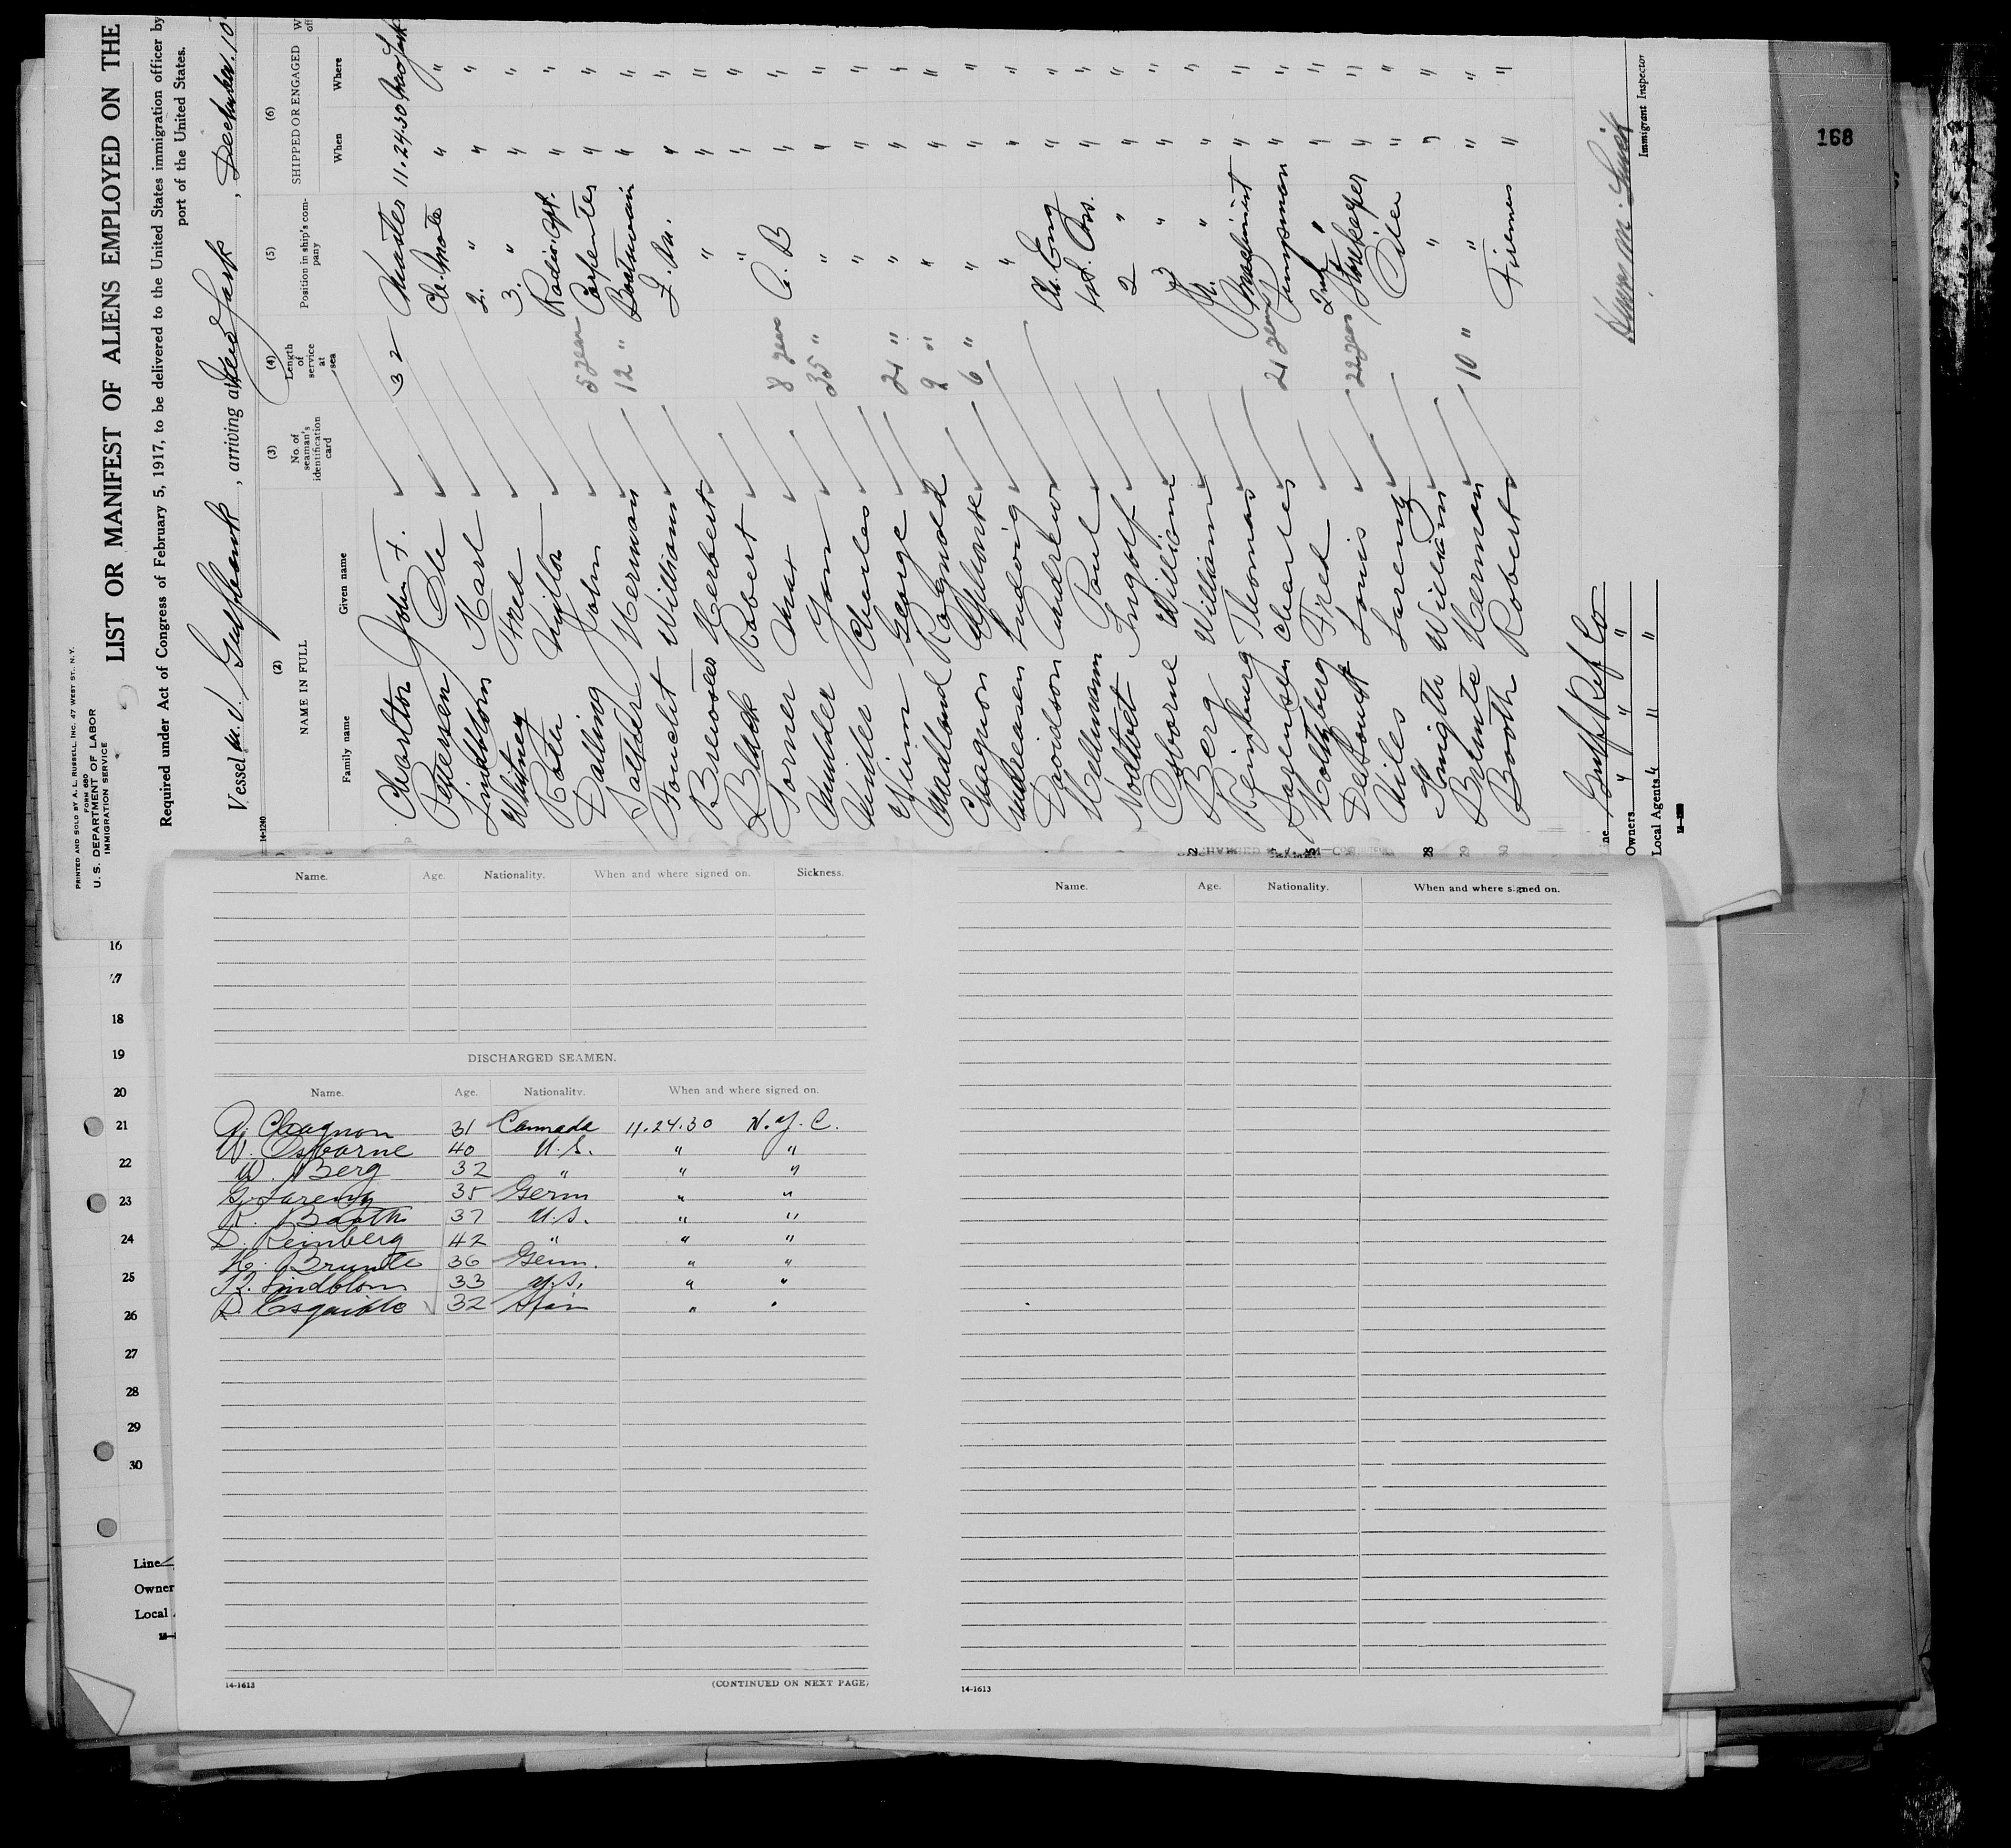 168
PRINTED AND SOLD BY A. L. RUSSELL, INC. 47 WEST ST. N.Y.
FORM 680
U. S. DEPARTMENT OF LABOR
IMMIGRATION SERVICE
LIST OR MANIFEST OF ALIENS EMPLOYED ON THE
Required under Act of Congress of February 5, 1917, to be delivered to the United States immigration officer by
port of the United States.
Vessel M.V. Gulfhawk, arriving at New York, December 10
14-1240
(2) (3) (4) (5) (6)
NAME IN FULL No. of seaman's identification card Length of service at sea Position in ship's company SHIPPED OR ENGAGED
Family name Given name When Where
Charlton John F. 32 Master 11.24.30 New York
Petersen Ole Ch. Mate " "
Lindblom Karl 2. " " "
Whitney Fred 3. " " "
Roth Radio Opt. " "
Dalling John 5 years Carpenter " "
Herman 12 " Boatswain " "
William " "
Herbert " " "
Black Robert " " "
Max 8 years A. B " "
35 " " " "
Charles " " "
George 21 " " " "
Ragnvald 9 " " " "
Chagnon Alphonse 6 " " " "
Andreasen Ludvig " " "
Davidson Andrew Ch. Eng " "
Hellmann Paul 1st. Ass. " "
Ingolf 2 " " "
Osborne William 3 " " "
Berg William " " "
Reinberg Thomas Machinist " "
Charles 21 years Pumpman " "
Holtzberg Fred 2nd " " "
Louis 22 years Storekeeper " "
Oiler " "
William " " "
Brunte Herman 10 " " " "
Booth Robert Fireman " "
28
29
30
ne Gulf Ref Co
Owners " " "
Local Agents " " "
Immigrant Inspector
16
17
18
19
20
21
22
23
24
25
26
27
28
29
30
Line
Owner
Local
Name. Age. Nationality. When and where signed on. Sickness.
DISCHARGED SEAMEN.
Name. Age. Nationality. When and where signed on.
A. Chagnon 31 Cannada 11.24.30 N.Y.C.
W. Osborne 40 U.S. " "
W. Berg 32 " " "
G. Lorenz 35 Germ " "
R. Booth 37 U.S. " "
Reinberg 42 " " "
H. Brunte 36 Germ. " "
Lindblom 33 U.S. " "
Esquible 32 Spain " "
14-1613
(CONTINUED ON NEXT PAGE)
Name. Age. Nationality. When and where signed on.
14-1613